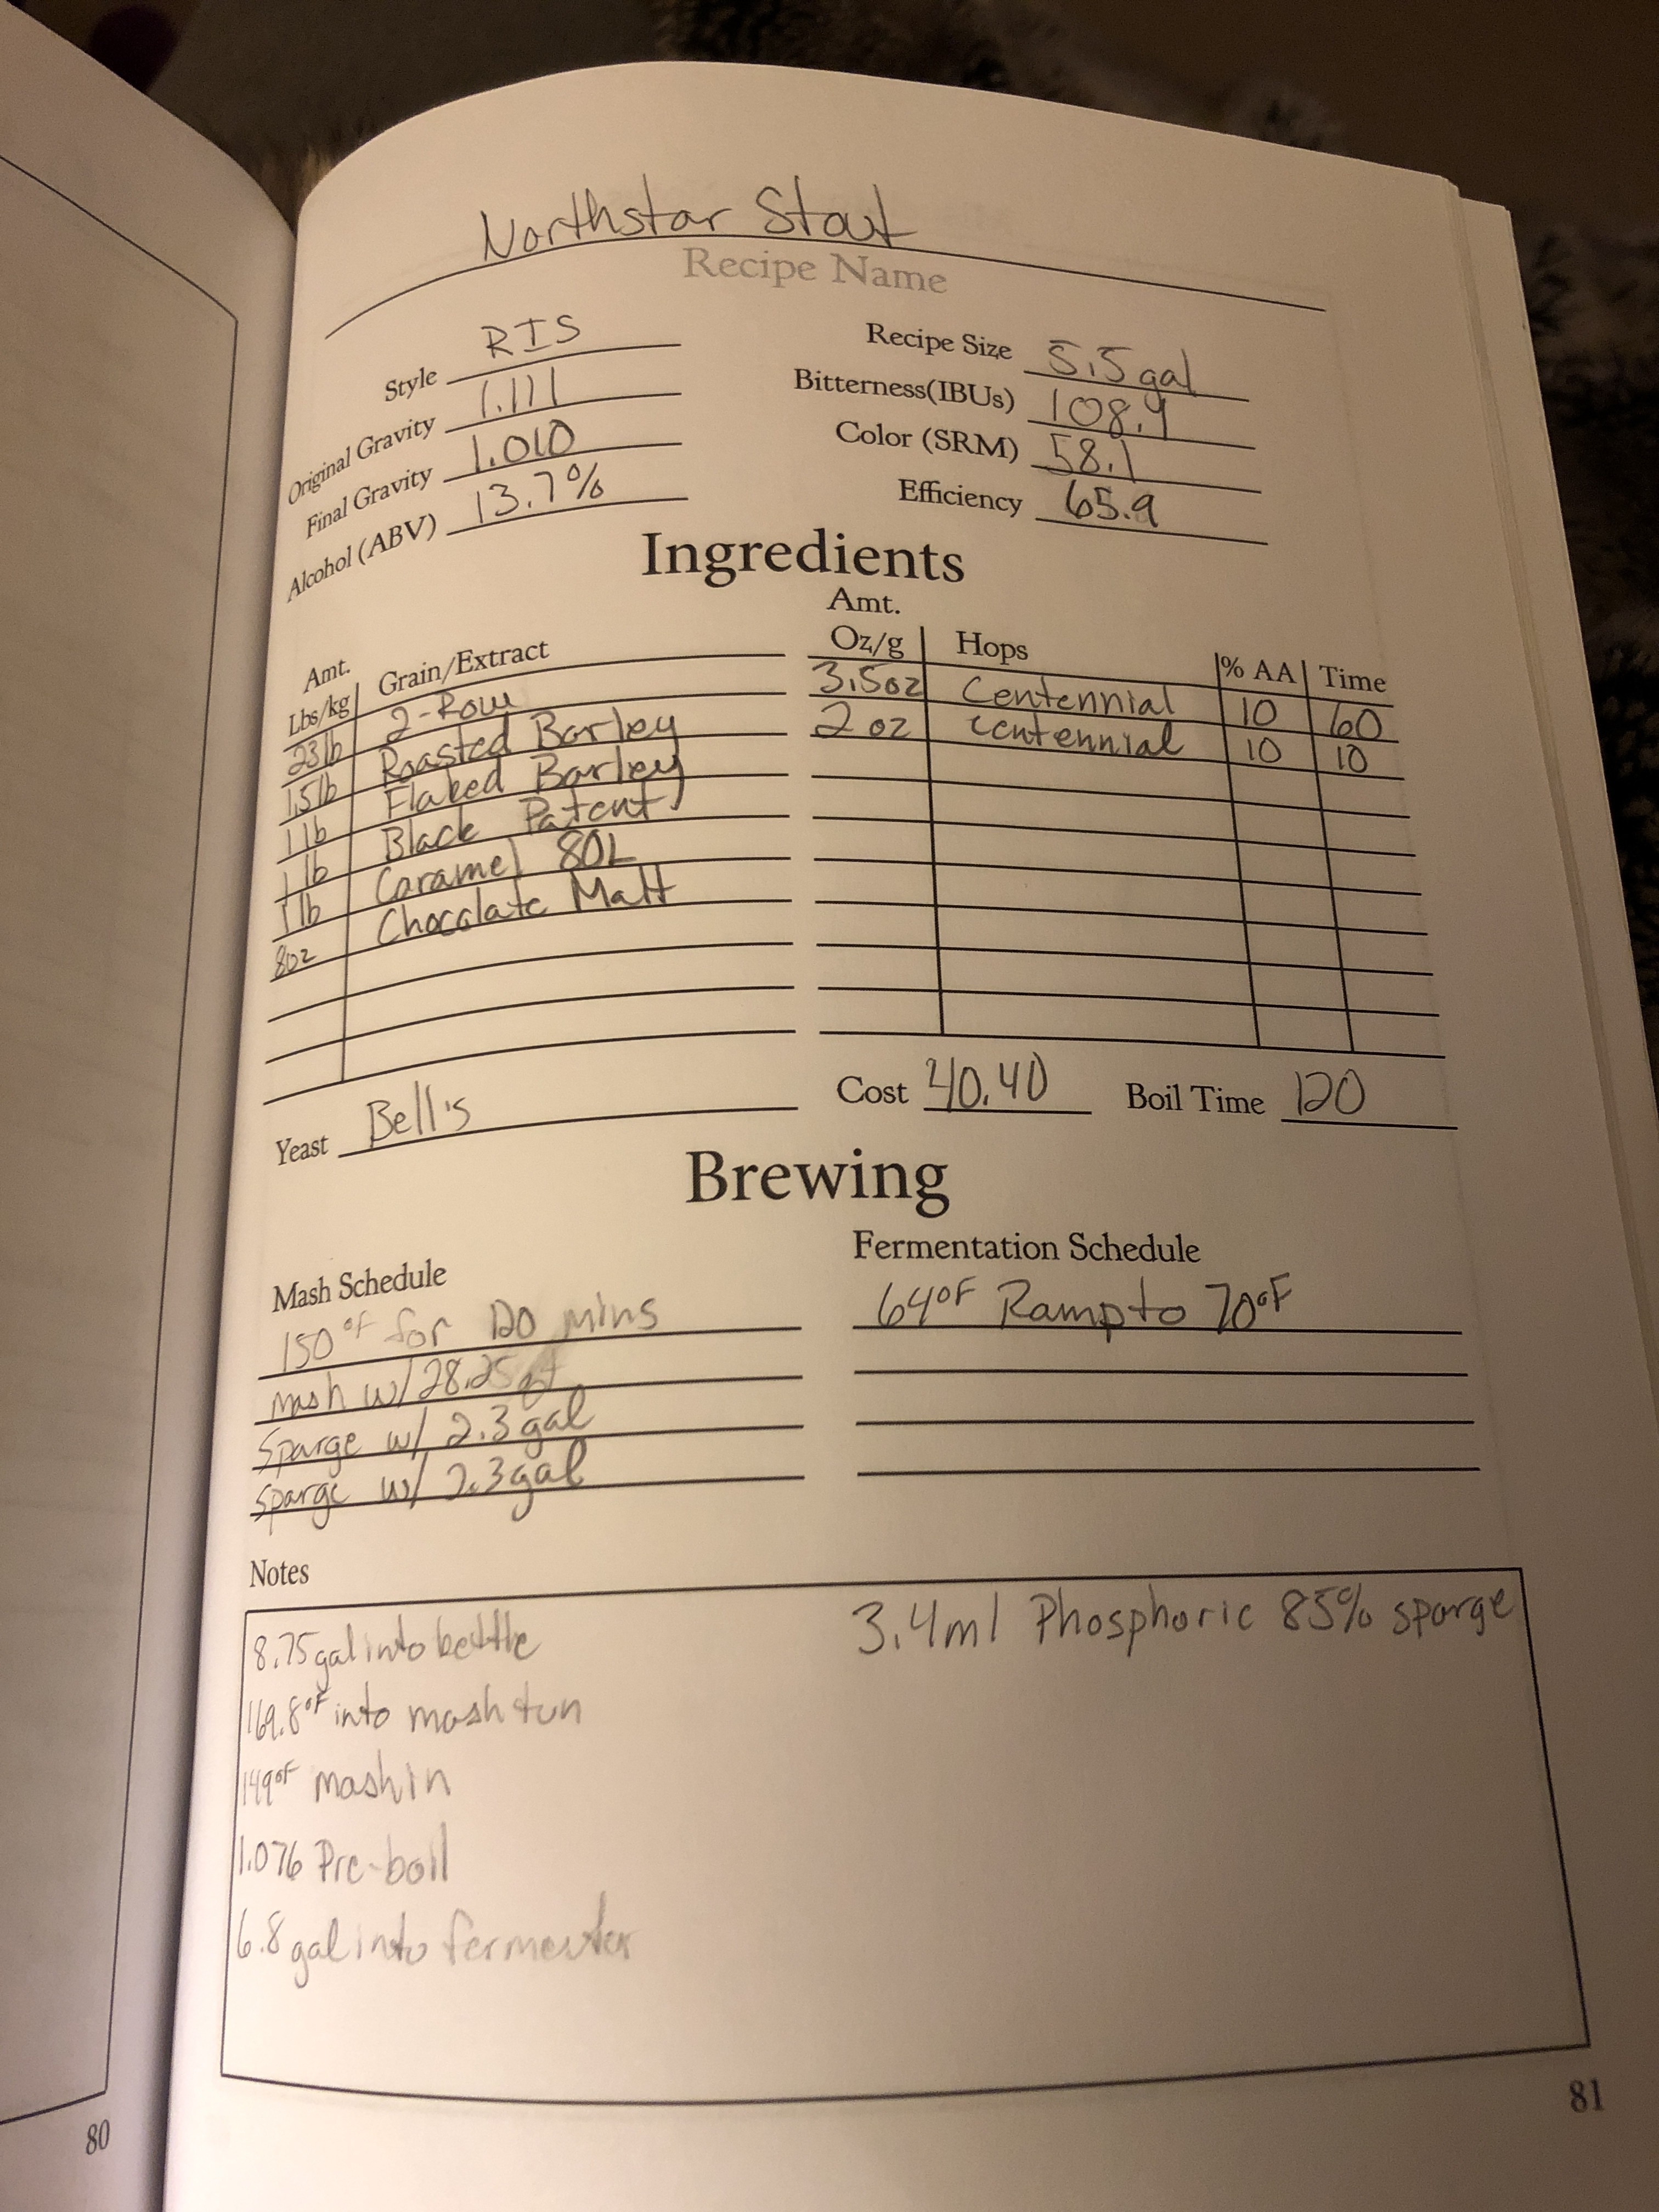 Northstar Stout
Recipe Name
Style RIS
Original Gravity 1.111
Final Gravity 1.010
Alcohol (ABV) 13.7%
Recipe Size 5.5 gal
Bitterness(IBUs) 108.9
Color (SRM) 58.1
Efficiency 65.9
Ingredients
Amt.
Lbs/kg Grain/Extract
23lb 2-Row
1.5lb Roasted Barley
1 lb Flaked Barley
1 lb Black Patent
1 lb Caramel 80L
8oz Chocolate Malt
Amt.
Oz/g Hops % AA Time
3.5oz Centennial 10 60
2 oz Centennial 10 10
Yeast Bell's
Cost 40.40 Boil Time 120
Brewing
Mash Schedule
150°F for 120 mins
Mash w/ 28.25 qt
Sparge w/ 2.3 gal
Sparge w/ 2.3 gal
Fermentation Schedule
64°F Ramp to 70°F
Notes
8.75 gal into kettle
169.8°F into mash tun
149°F mash in
1.076 Pre-boil
6.8 gal into fermenter
3.4ml Phosphoric 85% sparge
80
81